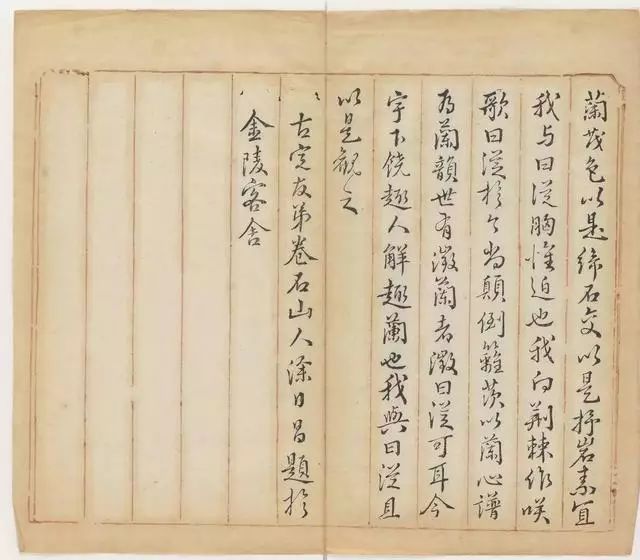 蘭茂色以是締石交以是抒岩素宜
我与曰從胸惟迫也我向荆棘作咲
歌曰從於今当顛倒籬茨以蘭心譜
為蘭韻世有澂蘭者澂曰從可耳今
宇下饒趣人解趣蘭也我與曰從且
以是観之
古完友弟卷石山人涂日昌題於
金陵客舍